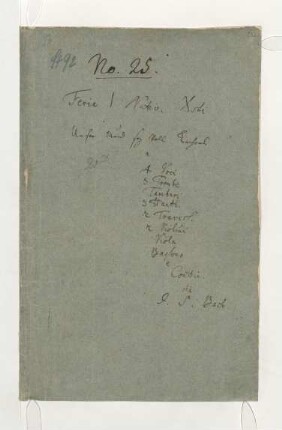 No. 25.
Ferie 1 Nativ. Xsti
Unser Mund sey voll Lachens
a
4 Voci
3 Trombe
Tamburi
3 Hautb.
2 Travers.
2 Violini
Viola
e
Contin.
di
J. S. Bach